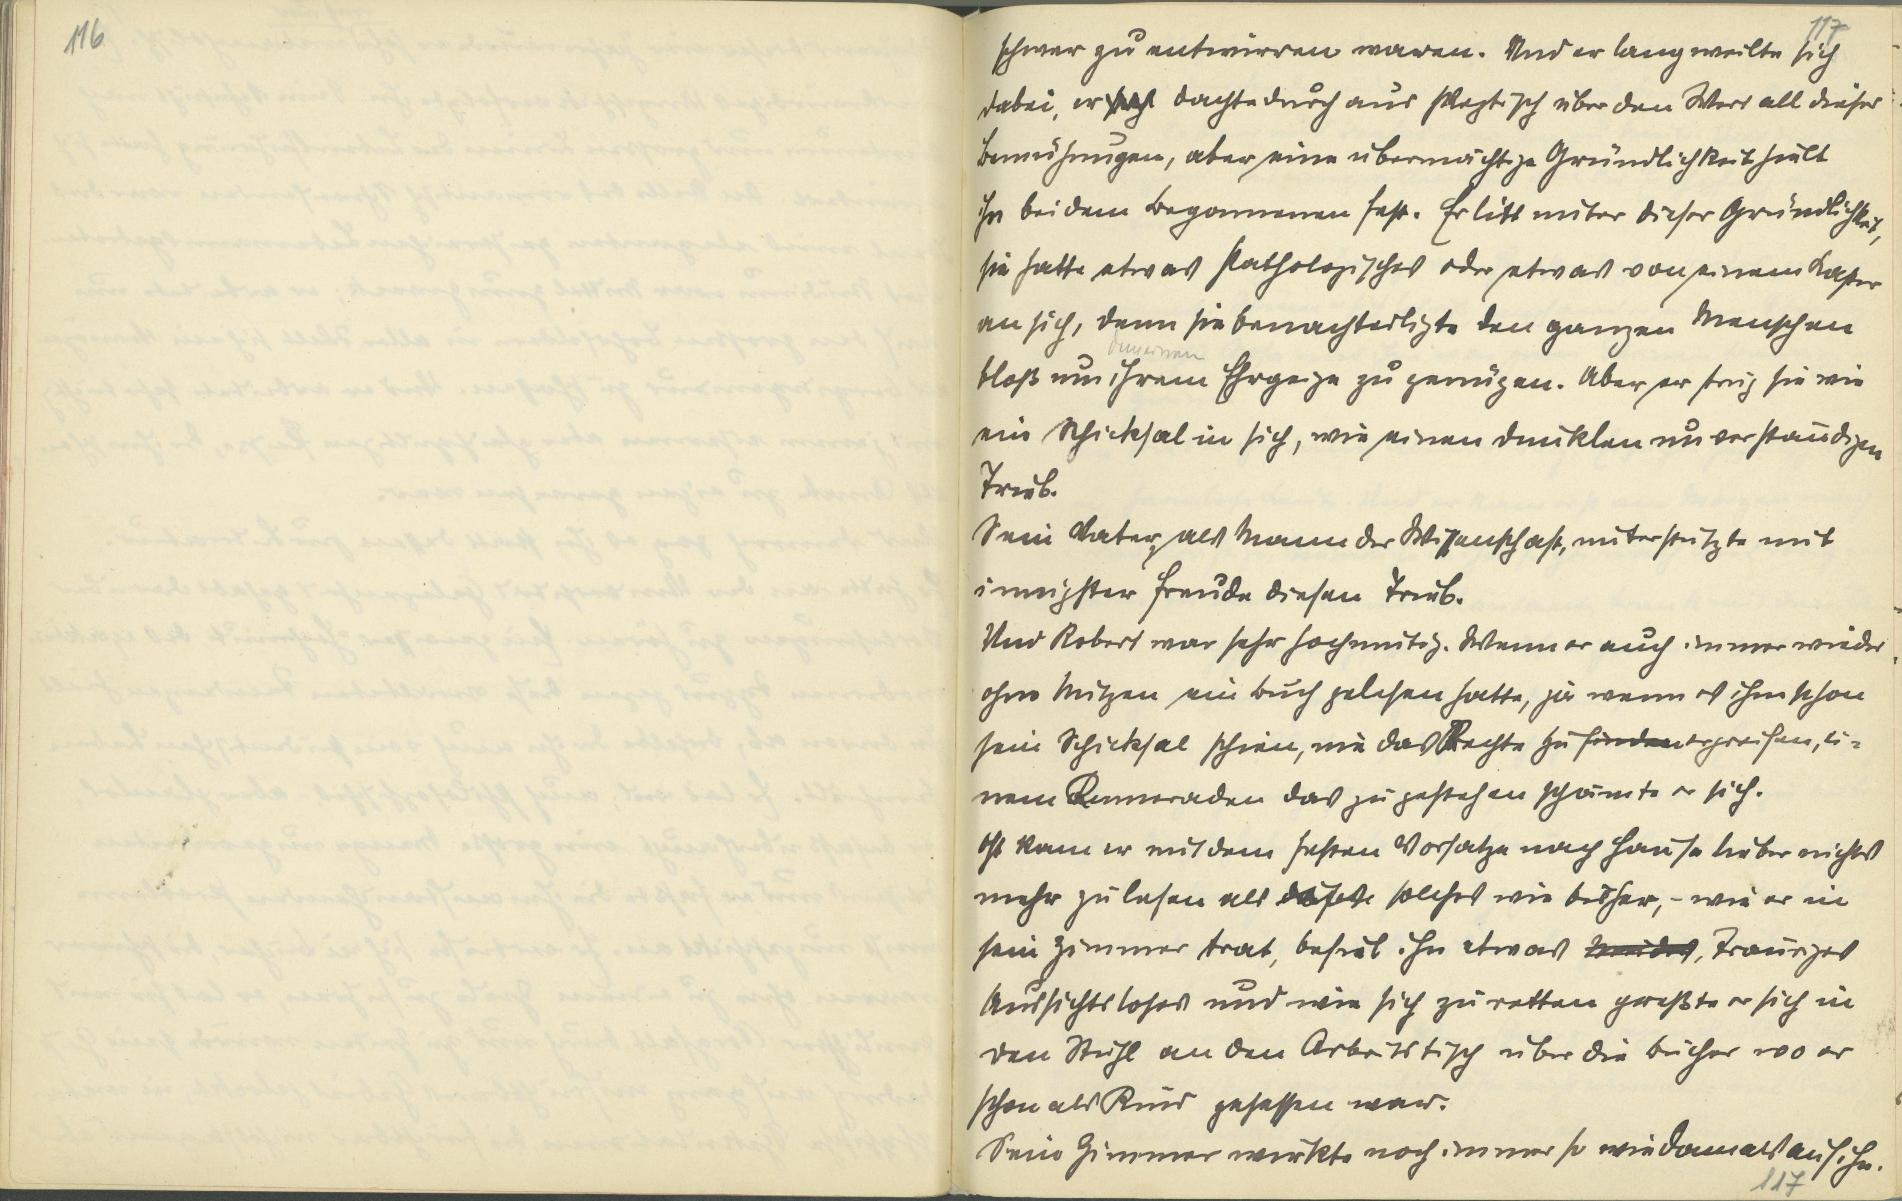 116
117
schwer zu entwirren waren. Und er langweilte sich
dabei, er dachte durchaus skeptisch über den Wert all dieser
Bemühungen, aber eine übermächtige Gründlichkeit hielt
ihn bei dem Begonnenen fest. Er litt unter dieser Gründlichkeit,
sie hatte etwas Pathologisches oder etwas von einem Laster
an sich, denn sie benachteiligte den ganzen Menschen
bloß um ihrem Ehrgeize zu genügen. Aber er trug sie wie
ein Schicksal in sich, wie einen dunklen unverständigen
Trieb.
Sein Vater, als Mann der Wissenschaft, unterstützte mit
innigster Freude diesen Trieb.
Und Robert war sehr hochmütig. Wenn er auch immer wieder
ohne Nutzen ein Buch gelesen hatte, ja wenn es ihm schon
sein Schicksal schien, nie das Rechte zu finden ergreifen, ei-
nem Kameraden das zu gestehen schämte er sich.
Oft kam er mit dem festen Vorsatze nach Hause lieber nichts
mehr zu lesen als solches wie bisher, – wie er in
sein Zimmer trat, befiel ihn etwas , Trauriges
Aussichtsloses und wie sich zu retten preßte er sich in
den Stuhl an den Arbeitstisch über die Bücher wo er
schon als Kind gesessen war.
Sein Zimmer wirkte noch immer so wie damals auf ihn.
117